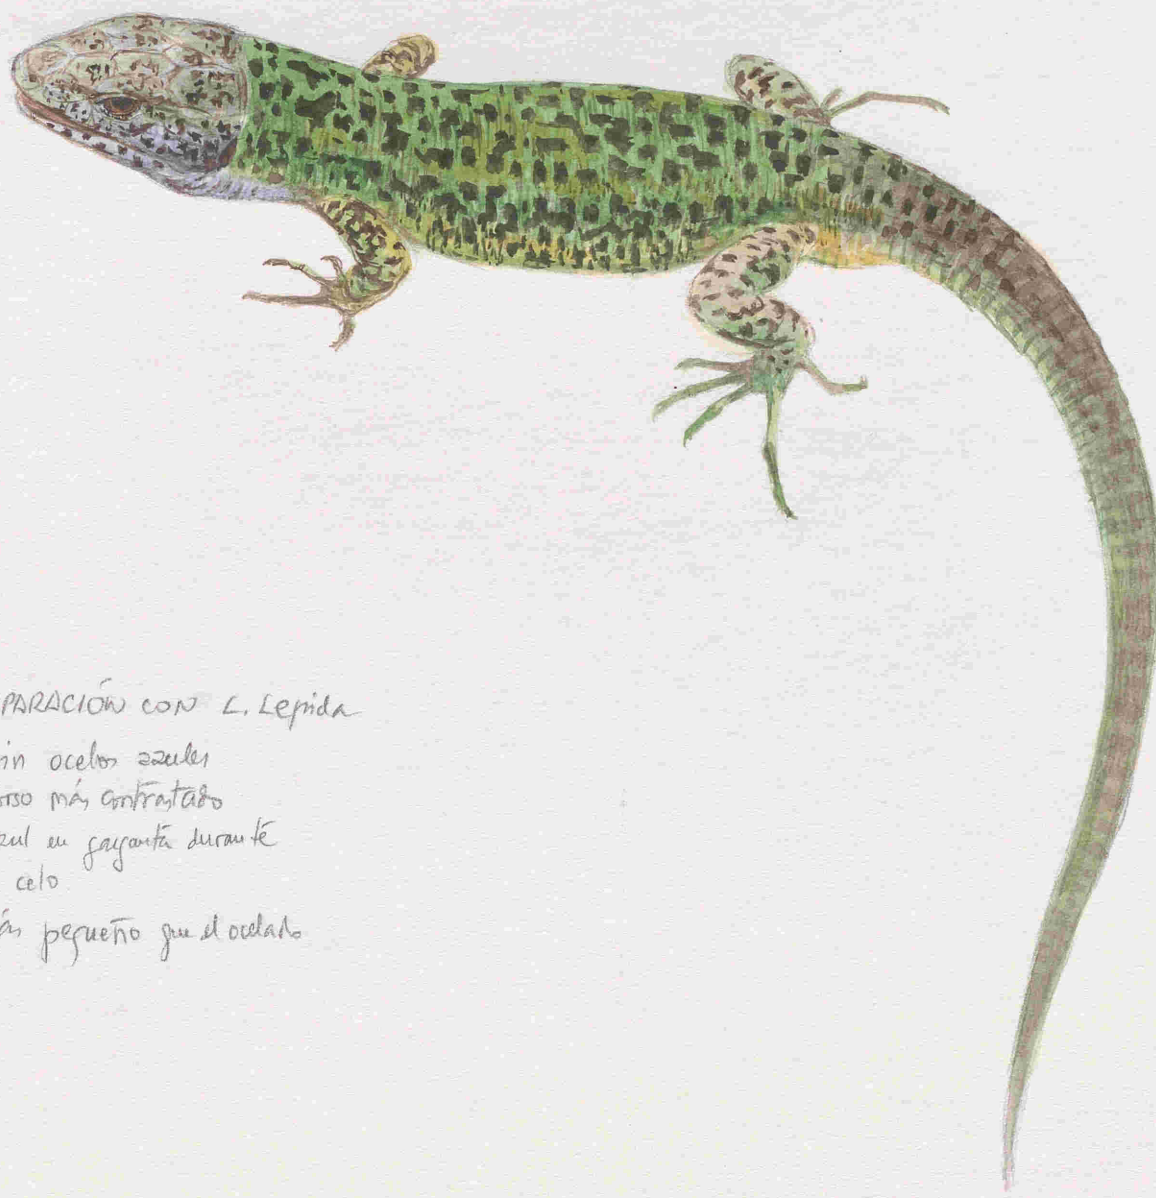 PARACIÓN CON L. Lepida
in ocelos azules
orso más contrastado
zul en garganta durante
celo
ás pequeño que el ocelado